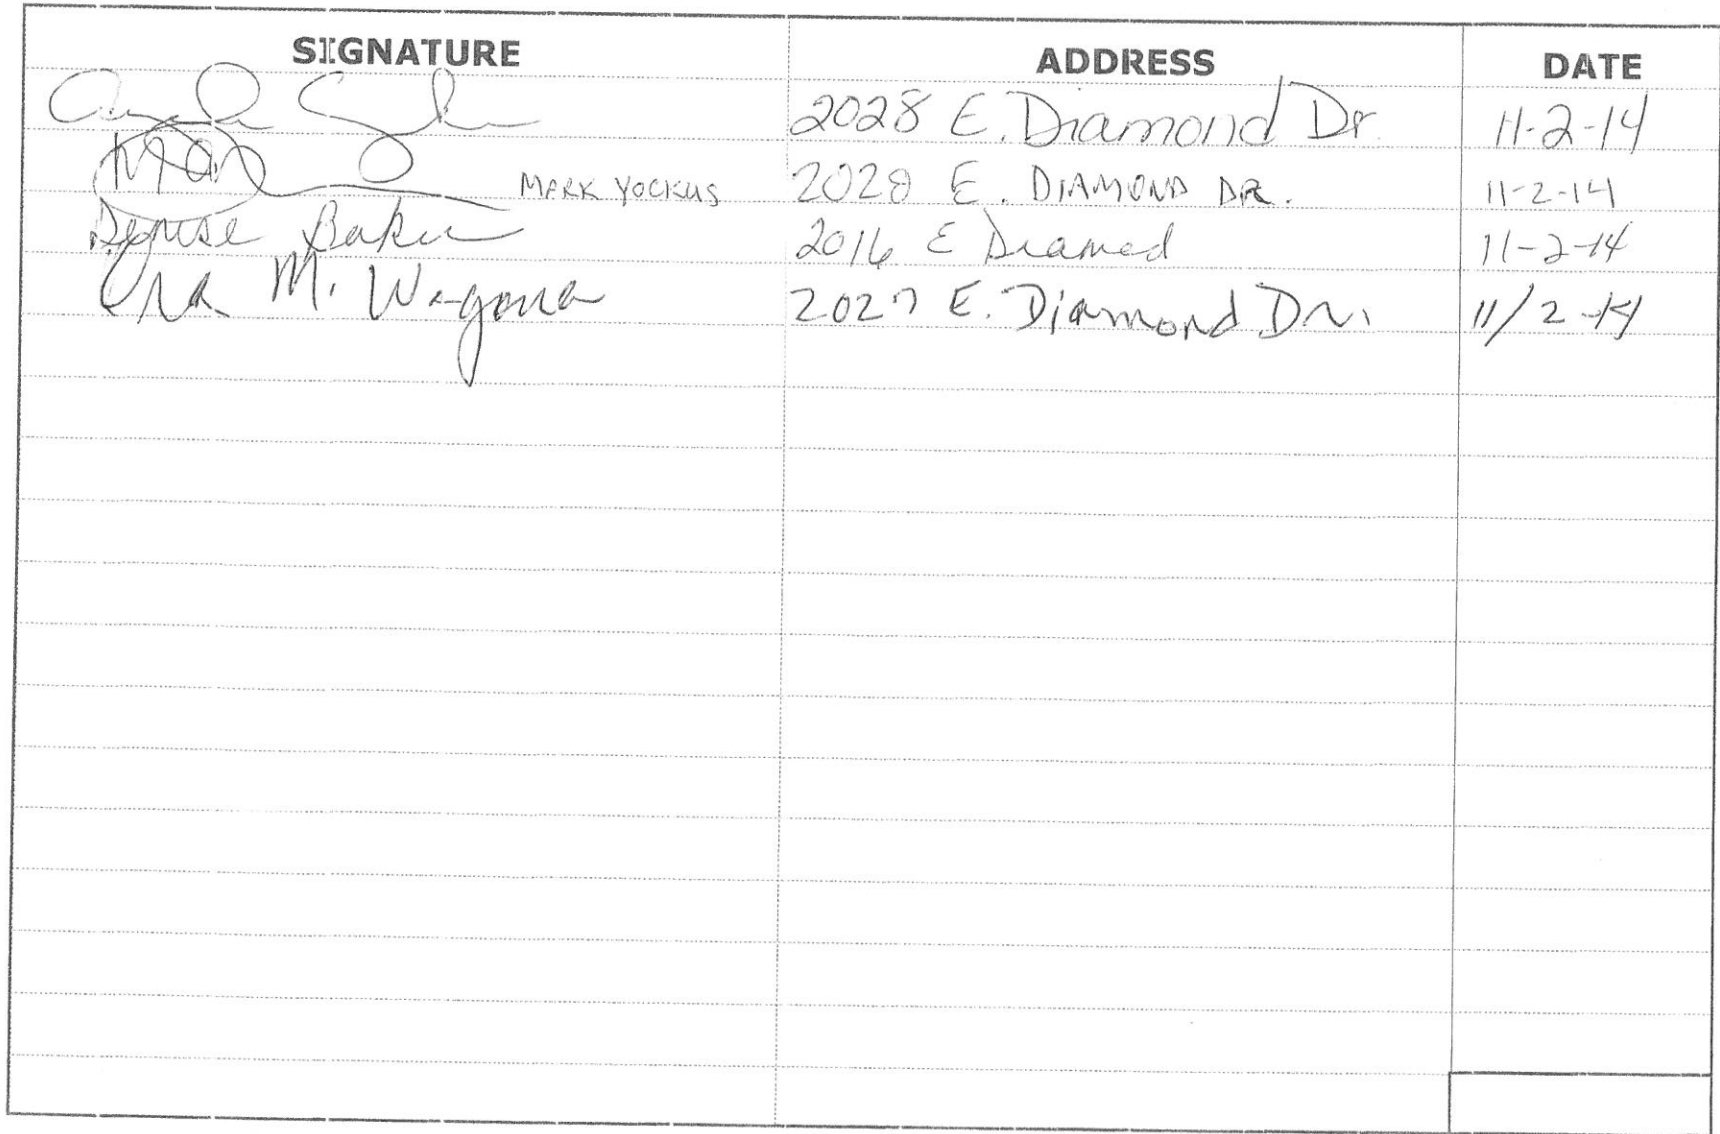 SIGNATURE ADDRESS DATE
2028 E. Diamond Dr. 11-2-14
MARK YOCKUS 2028 E. DIAMOND DR. 11-2-14
Denise Baker 2016 E Diamod 11-2-14
M. 2027 E. Diamond Dr. 11/2-14